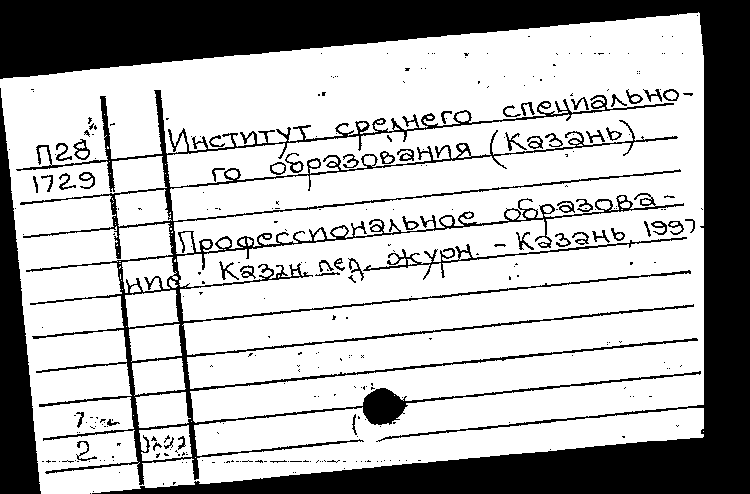 П28
1729
Институт среднего специально-
го образования (Казань).
Профессиональное образова-
ние: Казан. пед. журн. - Казань, 1997.
2